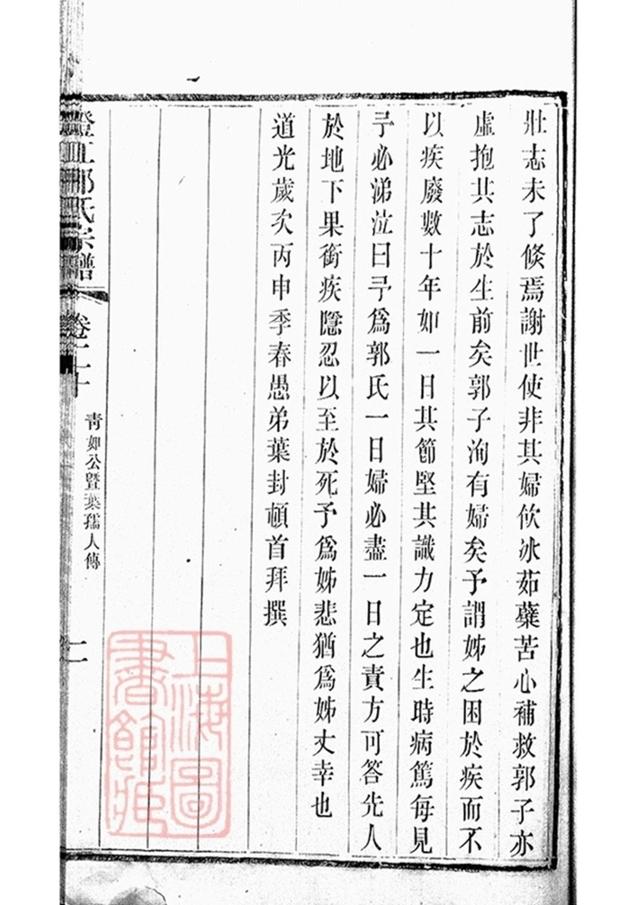 壯志未了倐焉謝世使非其婦飲冰茹蘗苦心補救郭子亦
虛抱其志於生前矣郭子洵有婦矣予謂姊之困於疾而不
以疾廢數十年如一日其節堅其識力定也生時病篤每見
予必涕泣曰予爲郭氏一日婦必盡一日之責方可答先人
於地下果銜疾隱忍以至於死予爲姊悲猶爲姊丈幸也
道光歲次丙申季春愚弟葉封頓首拜撰
澄江郭氏宗譜
卷二十
青如公暨葉孺人傳
二
上海圖
書館藏